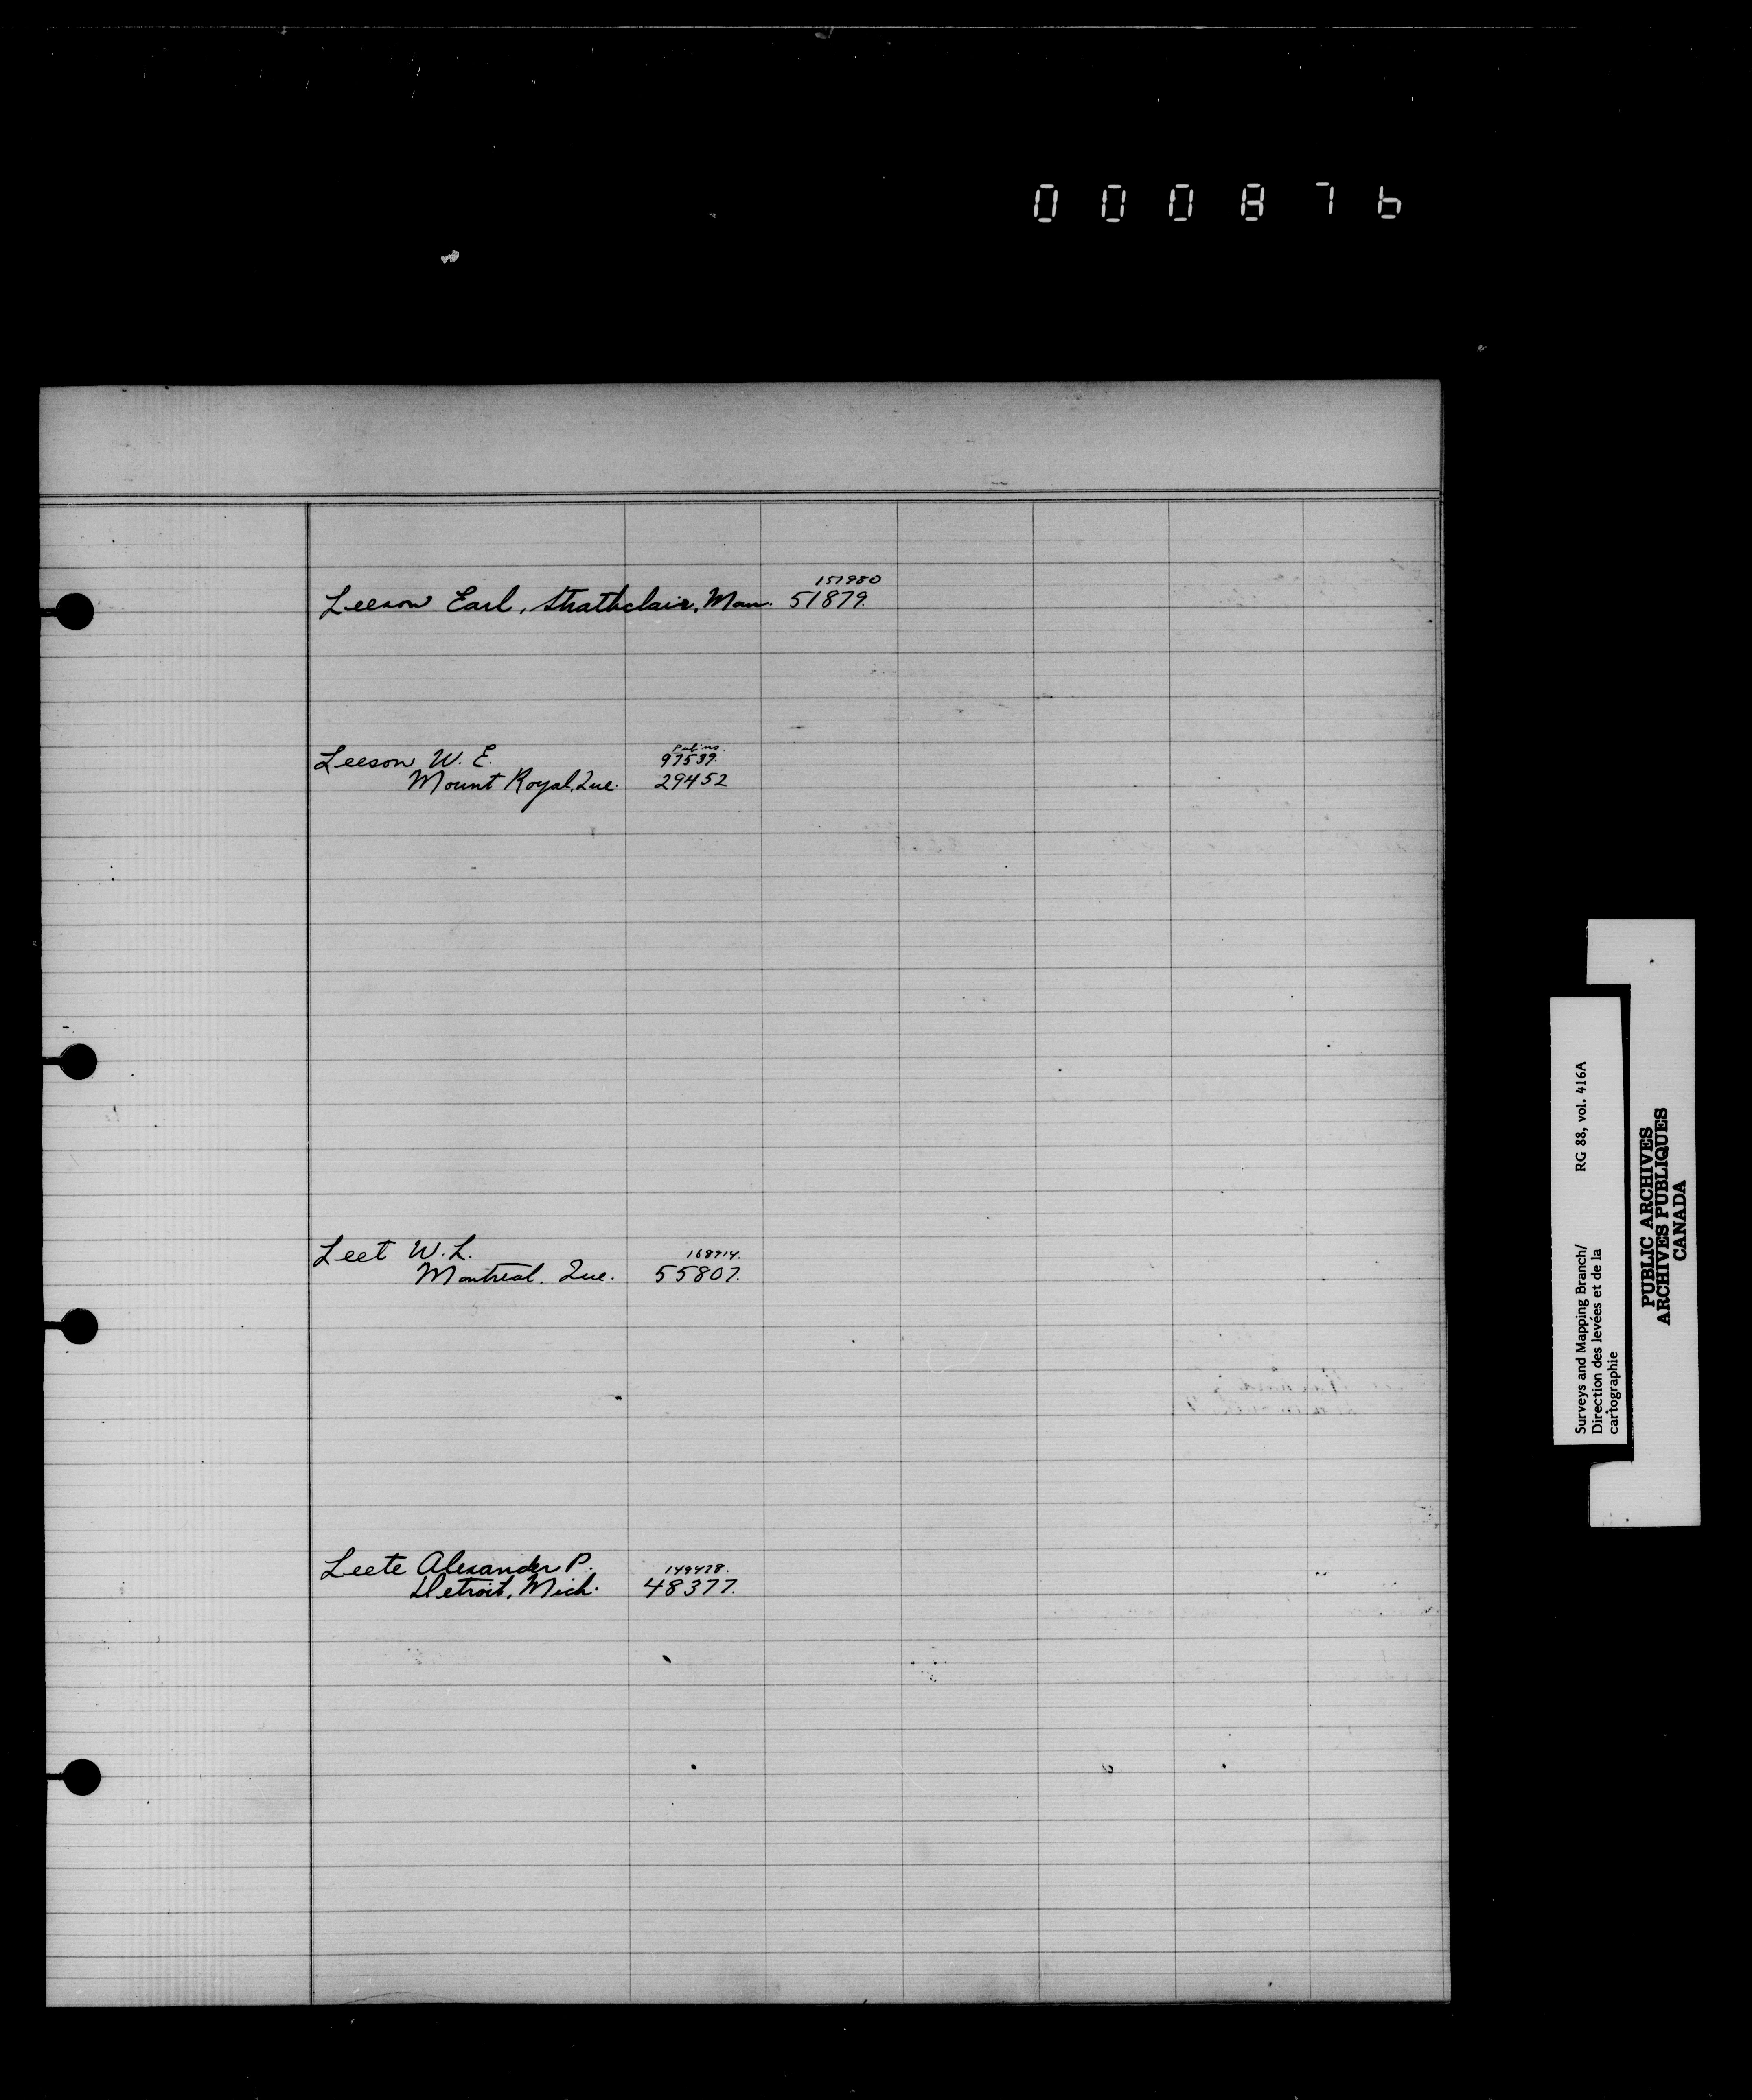 000876
157980
Leeson Earl, Strathclair, Man. 51879.
Leeson W. E.
97539.
Mount Royal, Que. 29452
Leet W. L.
168914.
Montreal. Que. 55807.
Leete Alexander P. 149478.
Detroit, Mich. 48377.
Surveys and Mapping Branch/ RG 88, vol. 416A
Direction des levées et de la
cartographie
PUBLIC ARCHIVES
ARCHIVES PUBLIQUES
CANADA